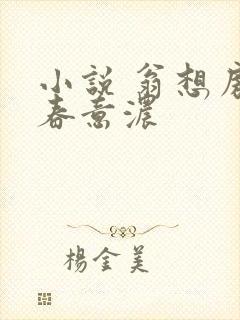 小説 翁想
春意濃
楊金美